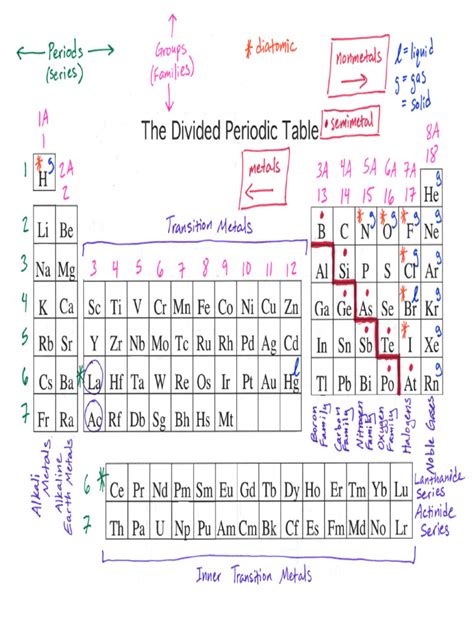 ← Periods →
(series)
Groups
(Families)
* diatomic
nonmetals
→
l = liquid
g = gas
= solid
• semimetal
The Divided Periodic Table
metals
←
1A
1
2A
2
3A 4A 5A 6A 7A 8A
13 14 15 16 17 18
1 * H g He g
Transition Metals
2 Li Be B C * N g * O g * F g Ne g
3 4 5 6 7 8 9 10 11 12
3 Na Mg Al Si P S * Cl g Ar g
4 K Ca Sc Ti V Cr Mn Fe Co Ni Cu Zn Ga Ge As Se * Br l Kr g
5 Rb Sr Y Zr Nb Mo Tc Ru Rh Pd Ag Cd In Sn Sb Te * I Xe g
6 Cs Ba * La Hf Ta W Re Os Ir Pt Au Hg l Tl Pb Bi Po At Rn g
7 Fr Ra Ac Rf Db Sg Bh Hs Mt
Alkali
Metals
Alkaline
Earth Metals
Boron
Family
Carbon
Family
Nitrogen
Family
Oxygen
Family
Halogens
Noble Gases
6 * Ce Pr Nd Pm Sm Eu Gd Tb Dy Ho Er Tm Yb Lu
Lanthanide
Series
7 Th Pa U Np Pu Am Cm Bk Cf Es Fm Md No Lr
Actinide
Series
Inner Transition Metals